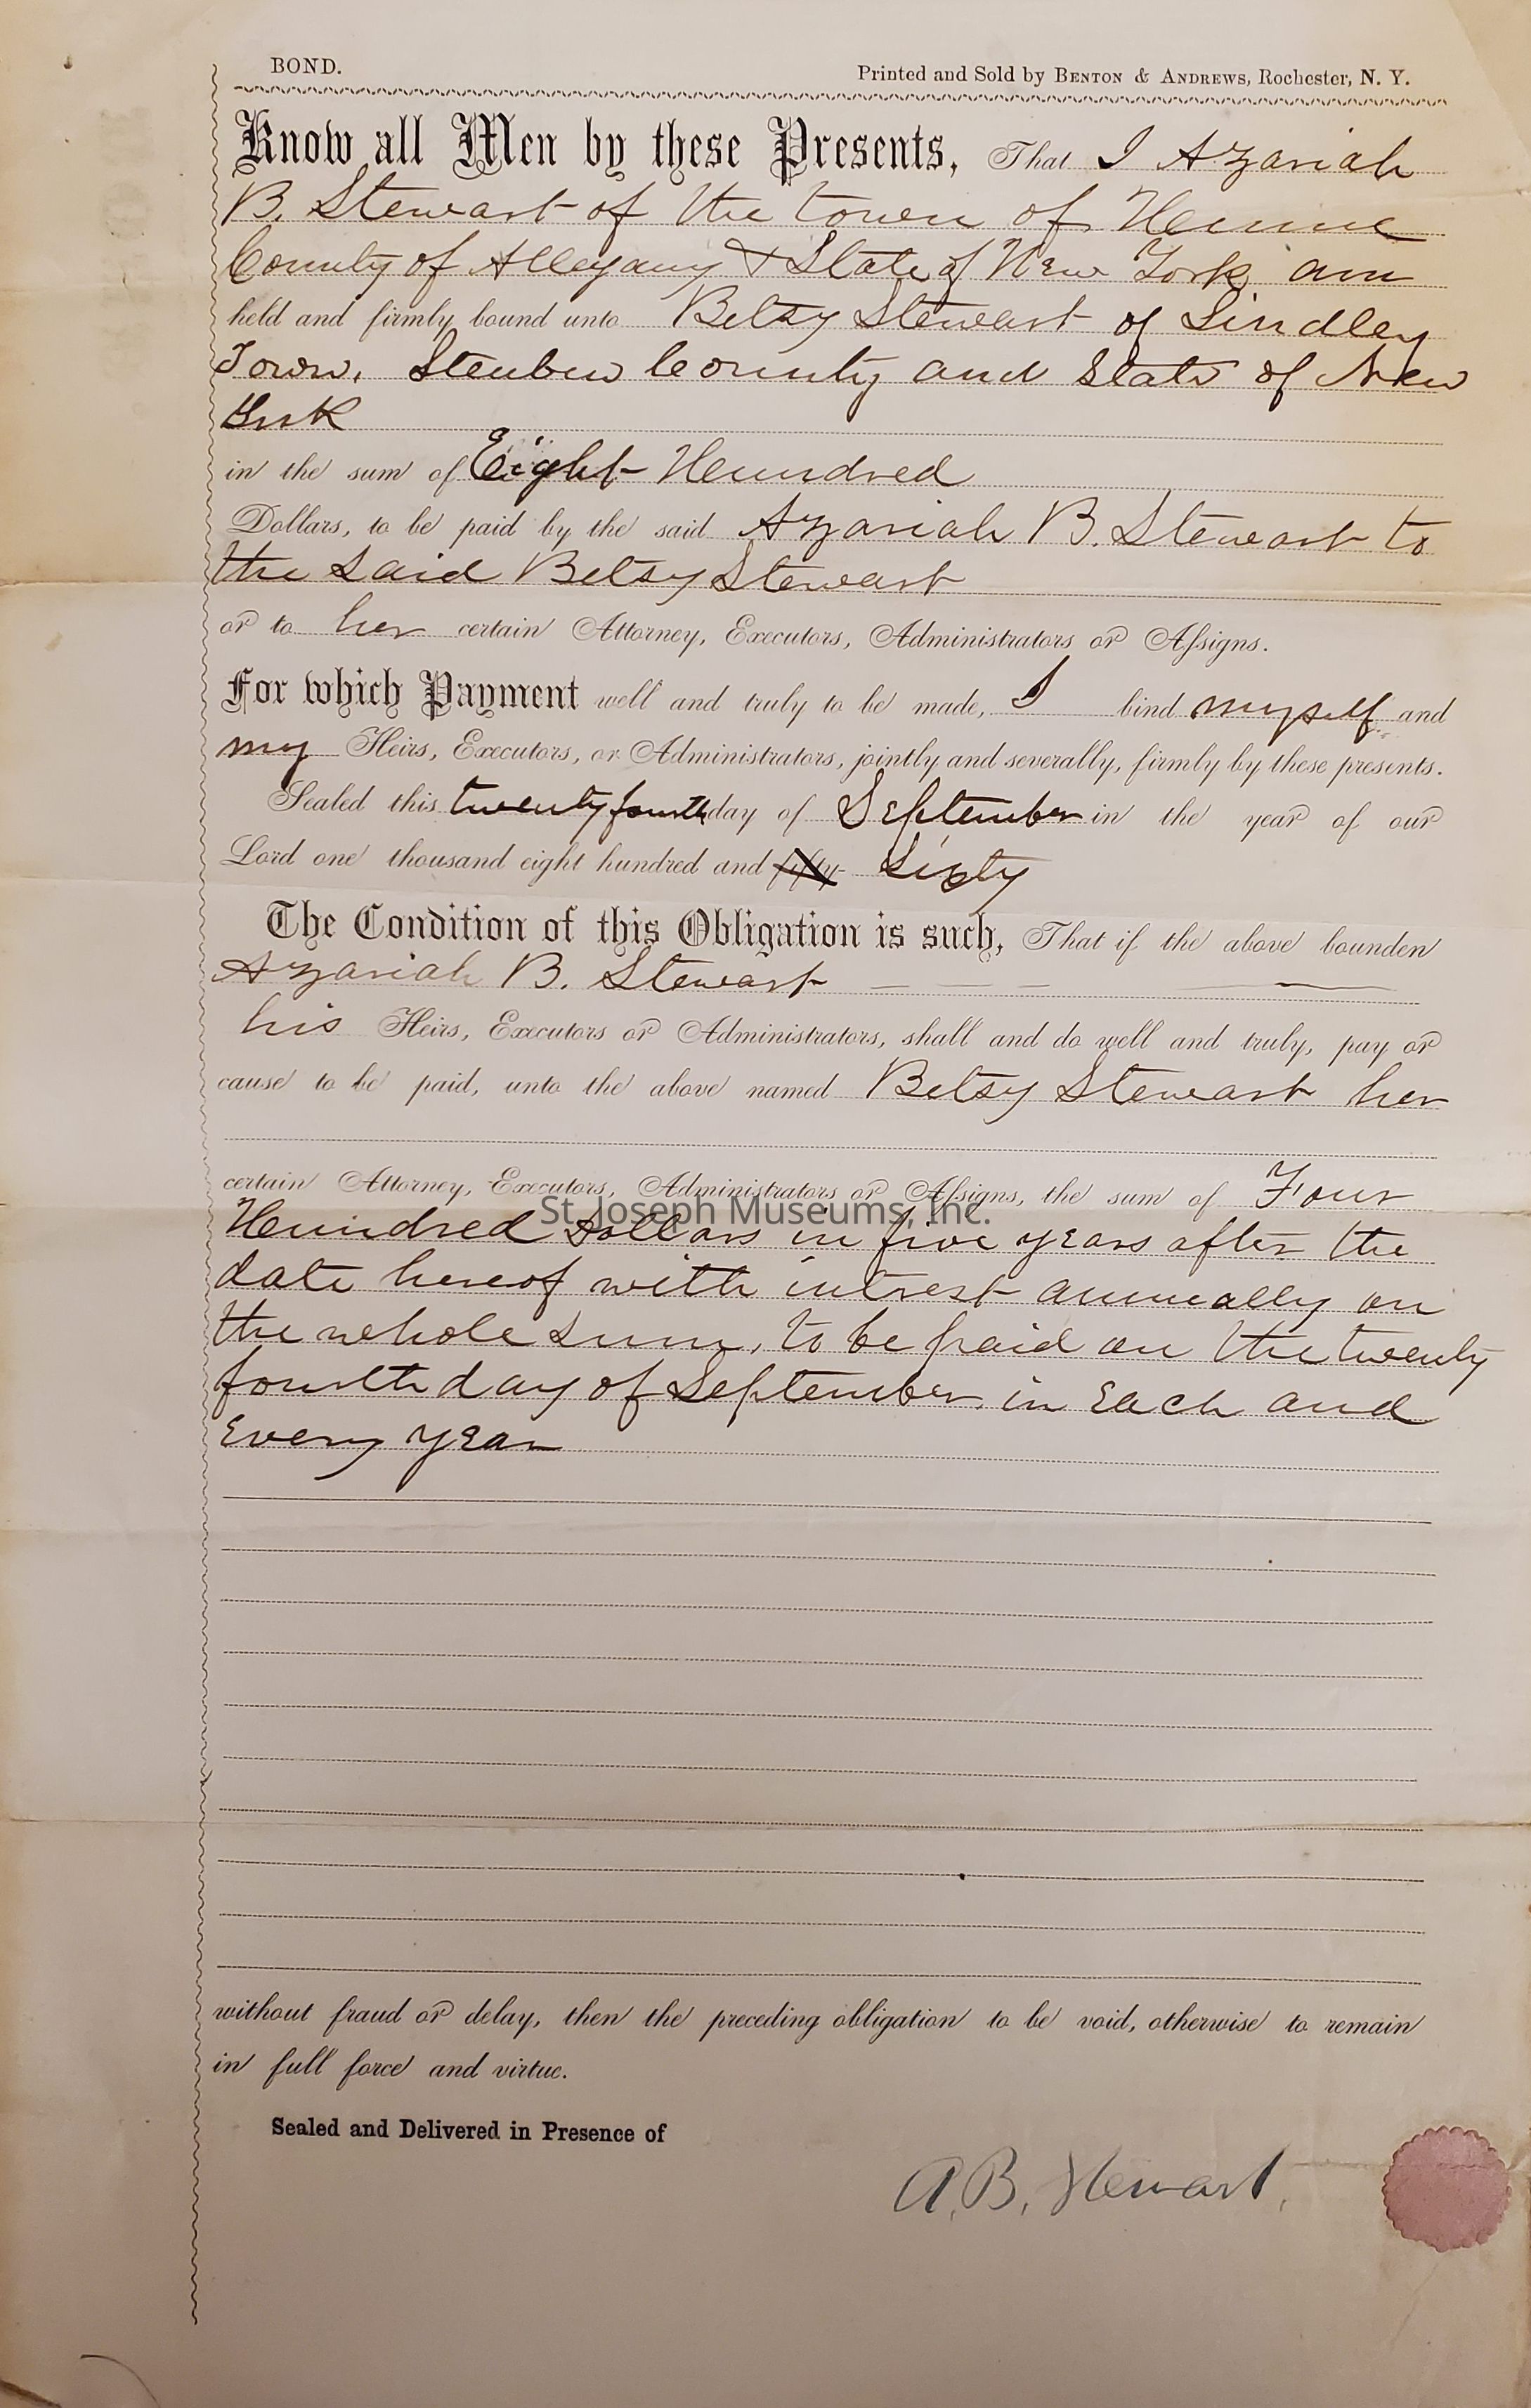 BOND.
Printed and Sold by BENTON & ANDREWS, Rochester, N. Y.
Know all Men by these Presents, That I Azariah
B. Stewart of the town of Hume
County of Allegany & State of New York am
held and firmly bound unto Betsy Stewart of Lindley
Town, Steuben County and State of New
York
in the sum of Eight Hundred
Dollars, to be paid by the said Azariah B. Stewart to
the said Betsy Stewart
or to her certain Attorney, Executors, Administrators or Assigns.
For which Payment well and truly to be made, I bind myself and
my Heirs, Executors, or Administrators, jointly and severally, firmly by these presents.
Sealed this twenty fourth day of September in the year of our
Lord one thousand eight hundred and fifty Sixty
The Condition of this Obligation is such, That if the above bounden
Azariah B. Stewart
his Heirs, Executors or Administrators, shall and do well and truly, pay or
cause to be paid, unto the above named Betsy Stewart her
certain Attorney, Executors, Administrators or Assigns, the sum of Four
St. Joseph Museums, Inc.
Hundred Dollars in five years after the
date hereof with intrest annually on
the whole sum, to be paid on the twenty
fourth day of September in Each and
Every year
without fraud or delay, then the preceding obligation to be void, otherwise to remain
in full force and virtue.
Sealed and Delivered in Presence of
A. B. Stewart.